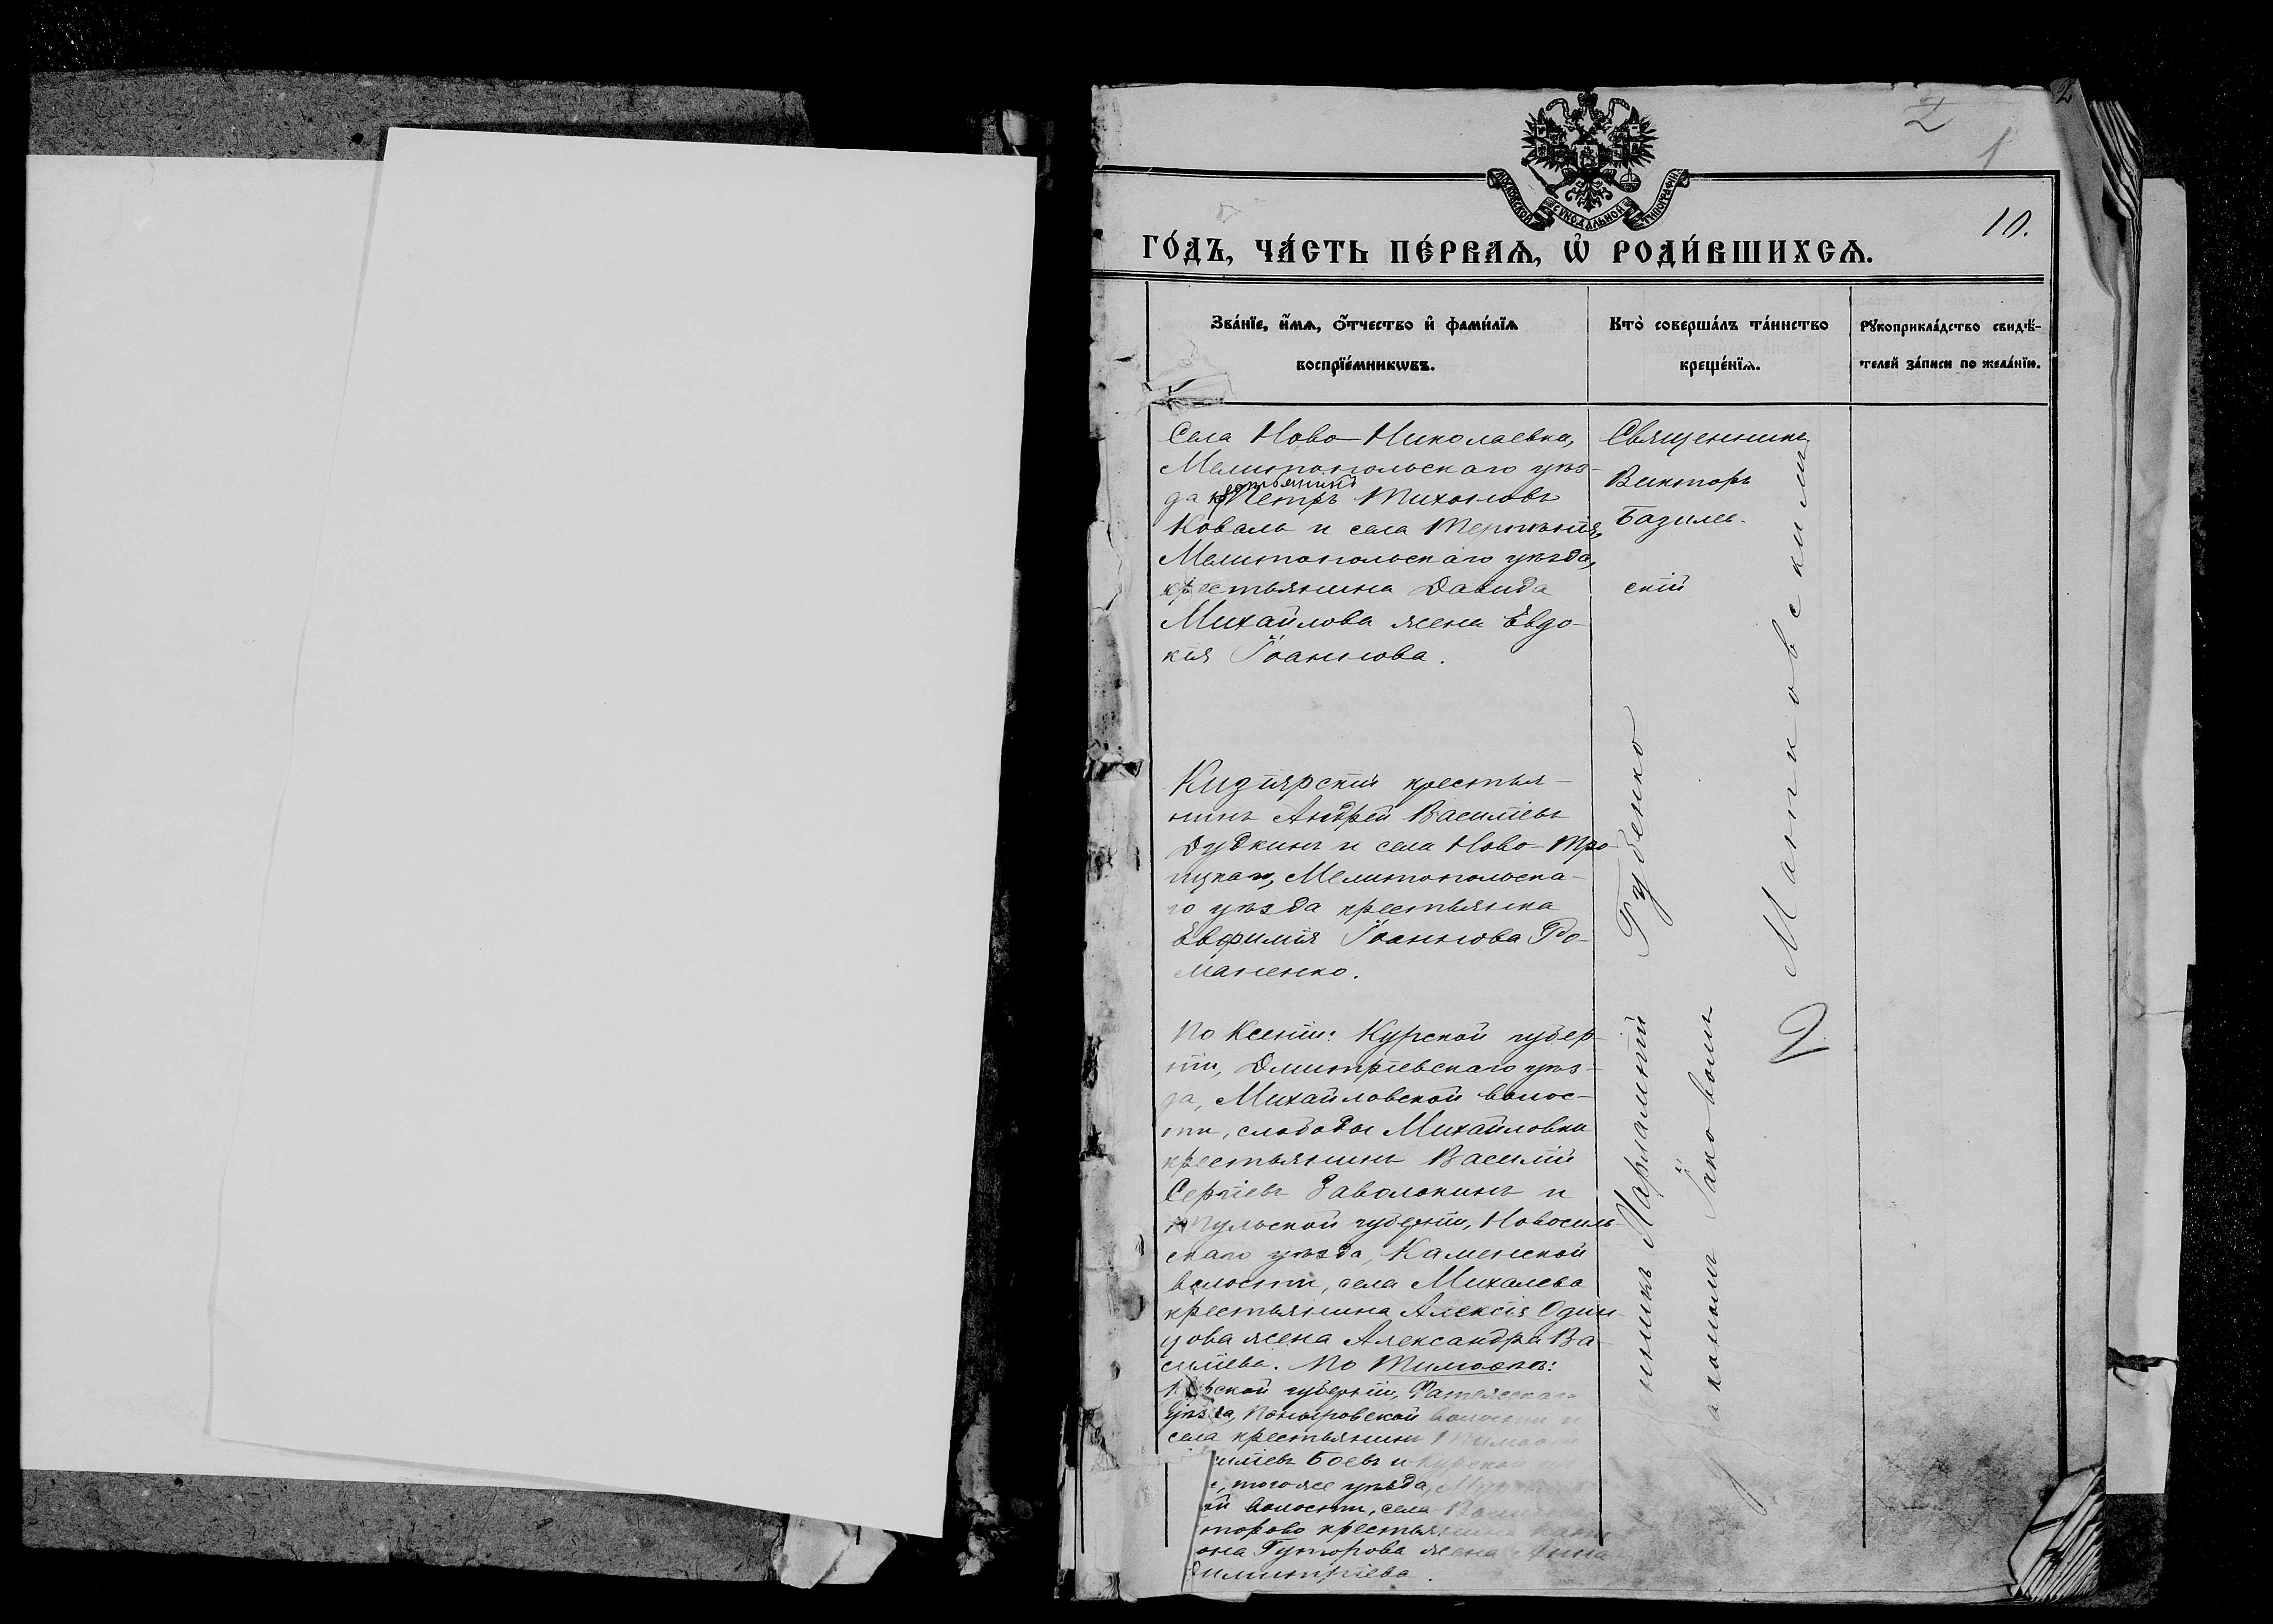 2
2
1
МОСКОВСКОЙ СѴНОДАЛЬНОЙ ТИПОГРАФІИ
10.
ГО́ДЪ, ЧА́СТЬ ПЕ́РВАѦ, Ѽ РОДИ́ВШИХСѦ.
Зва́нїе, и́мѧ, ѻ҆́тчество и҆ фами́лїѧ
воспрїе́мникѡвъ.
Кто̀ соверша́лъ та́инство
креще́нїѧ.
Рꙋкоприкла́дство свидѣ́-
телей за́писи по жела́нїю.
Села Ново-Николаевка,
Мелитопольскаго уѣз-
да крестьянинъ Петръ Тихоновъ
Коваль и села Терпѣнія,
Мелитопольскаго уѣзда,
крестьянина Давида
Михайлова жена Евдо-
кія Іоаннова.
Священникъ
Викторъ
Базилев-
скій
Кизіярскій крестья-
нинъ Андрей Василіевъ
Дудкинъ и села Ново-Тро-
ицкаго, Мелитопольска-
го уѣзда крестьянка
Евфимія Іоаннова Ро-
маненко.
По Ксеніи: Курской губер-
ніи, Дмитріевскаго уѣз-
да, Михайловской волос-
ти, слободы Михайловки
крестьянинъ Василій
Сергіевъ Заволокинъ и
Тульской губерніи, Новосиль-
скаго уѣзда, Каменской
волости, села Михалева
крестьянина Алексія Один-
цова жена Александра Ва-
силіева. По Тимоѳею:
Курской губерніи, Фатежскаго
уѣзда, Поныровской волости и
села крестьянинъ
Боевъ и Курской
, того же уѣзда,
ой волости, села
крестьянина
Гуторова жена Анна
Димитріева.
Харлампій Губенко
Іаковомъ
Манковскимъ